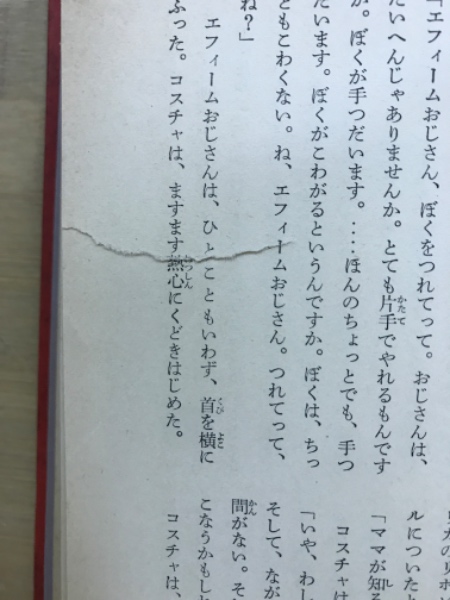 「エフィームおじさん、ぼくをつれてって。おじさんは、
たいへんじゃありませんか。とても片手でやれるもんです
か。ぼくが手つだいます。‥‥ほんのちょっとでも、手つ
だいます。ぼくがこわがるというんですか。ぼくは、ちっ
ともこわくない。ね、エフィームおじさん。つれてって、
ね？」
エフィームおじさんは、ひとこともいわず、首を横に
ふった。コスチャは、ますます熱心にくどきはじめた。
ルについた
「ママが知る
コスチャは
「いや、わし
そして、なが
間がない。そ
こなうかもし
コスチャは、